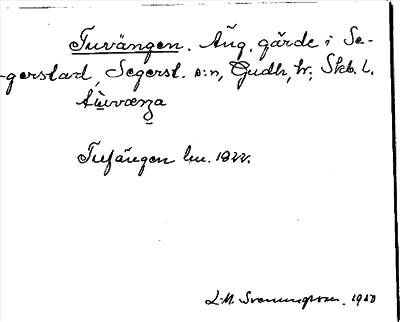 Tuvängen. Äng, gärde i Se-
gerstad, Segerst. s:n, Gudh. hr; Skb. l.
Tufängen lm. 1822.
L-M. Svenungsson. 1930